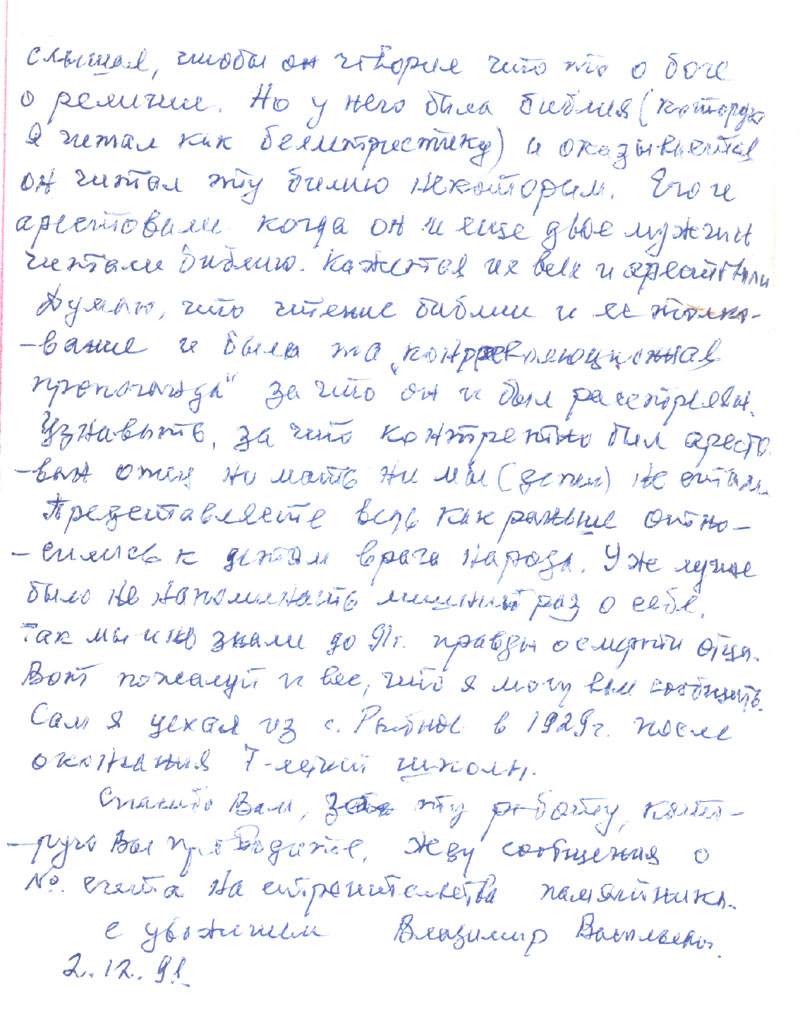 слышал, чтобы он говорил что то о боге
о религии. Но у него была библия (которую
я читал как беллетристику) и оказывается
он читал эту билию некоторим. Его и
арестовали когда он и еще двое мужчин
читали библию. Кажется их всех и арестовали
Думаю, что чтение библии и ее толко-
-вание и была та „контрреволюционная
пропоганда" за что он и был расстрелян.
Узнавыть, за что контретно был аресто
-ван отец ни мать ни мы (дети) не стали.
Представляете ведь как раньше отно-
-сились к детям врага народа. Уж лучше
было не напоминать лишний раз о себе.
Так мы и не знали до 91г. правды о смерти отца.
Вот пожалуй и все, что я могу вам сообщить.
Сам я уехал из с. Рыбное в 1929г. после
окончания 7-летней школы.
Спасибо Вам, за эту работу, кото-
-рую Вы проводите. Жду сообщения о
№. счета на строительства памятника.
с уважением Владимир Васильевич.
2.12.91.